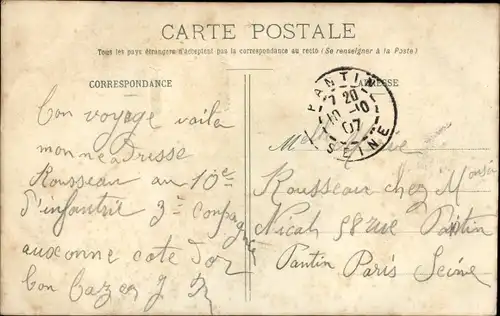 CARTE POSTALE
Tous les pays étrangers n'acceptent pas la correspondance au recto (Se renseigner à la Poste)
CORRESPONDANCE
ADRESSE
PANTIN
7 20
10 -10
07
SEINE
Bon voyage voila
mon neadresse
Rousseau au 10e
d'infantrie 3e conpagnie
auxonne cote Dor
bon
Rousseau chez Monsr
Nicah 58 rue Pantin
Pantin Paris Seine